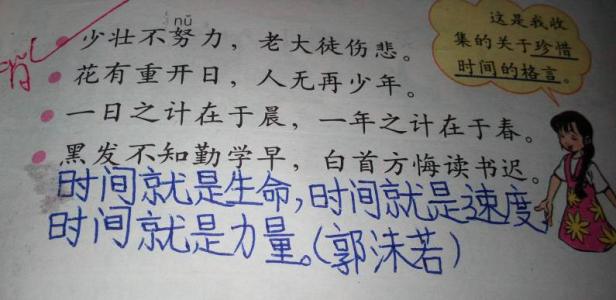 nǔ
少壮不努力，老大徒伤悲。
花有重开日，人无再少年。
一日之计在于晨，一年之计在于春。
黑发不知勤学早，白首方悔读书迟。
时间就是生命,时间就是速度,
时间就是力量。(郭沫若)
这是我收
集的关于珍惜
时间的格言。